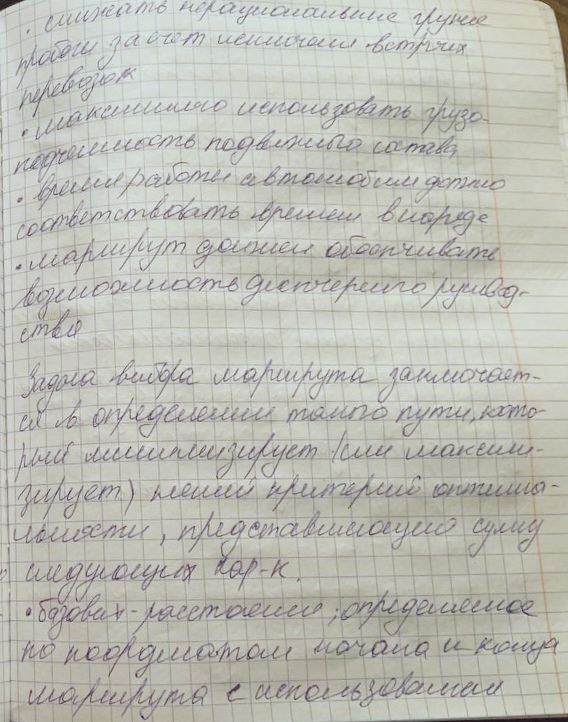 • снижать нерациональные груже
пробеги за счет исключения встречных
перевозок
• максимально использовать грузо
подъемность подвижного состава
• время работы автомобиля должно
соответствовать времени в наряде
• маршрут должен обеспечивать
возможность диспетчерного руковод-
ства
Задача выбора маршрута заключает-
ся в определении такого пути, кото-
рый минимизирует (или максими-
зирует) некий критерий оптималь-
ности, представляющего сумму
следующих хар-к.
• базовых - расстояние; определяемое
по координатам начала и конца
маршрута с использованием